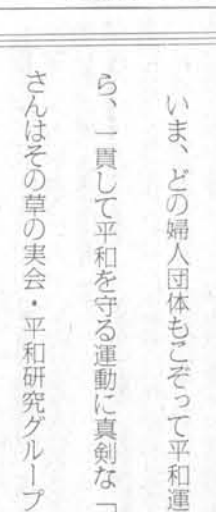 いま、どの婦人団体もこぞって平和運
ら、一貫して平和を守る運動に真剣な「
さんはその草の実会・平和研究グループ